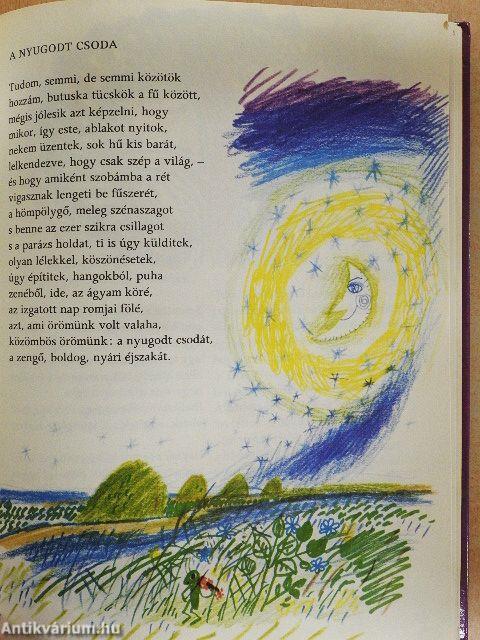 A NYUGODT CSODA
Tudom, semmi, de semmi közötök
hozzám, butuska tücskök a fű között,
mégis jólesik azt képzelni, hogy
mikor, így este, ablakot nyitok,
nekem üzentek, sok hű kis barát,
lelkendezve, hogy csak szép a világ, –
és hogy amiként szobámba a rét
vigasznak lengeti be fűszerét,
a hömpölygő, meleg szénaszagot
s benne az ezer szikra csillagot
s a parázs holdat, ti is úgy külditek,
olyan lélekkel, köszönésetek,
úgy építitek, hangokból, puha
zenéből, ide, az ágyam köré,
az izgatott nap romjai fölé,
azt, ami örömünk volt valaha,
közömbös örömünk: a nyugodt csodát,
a zengő, boldog, nyári éjszakát.
Antikvárium.hu